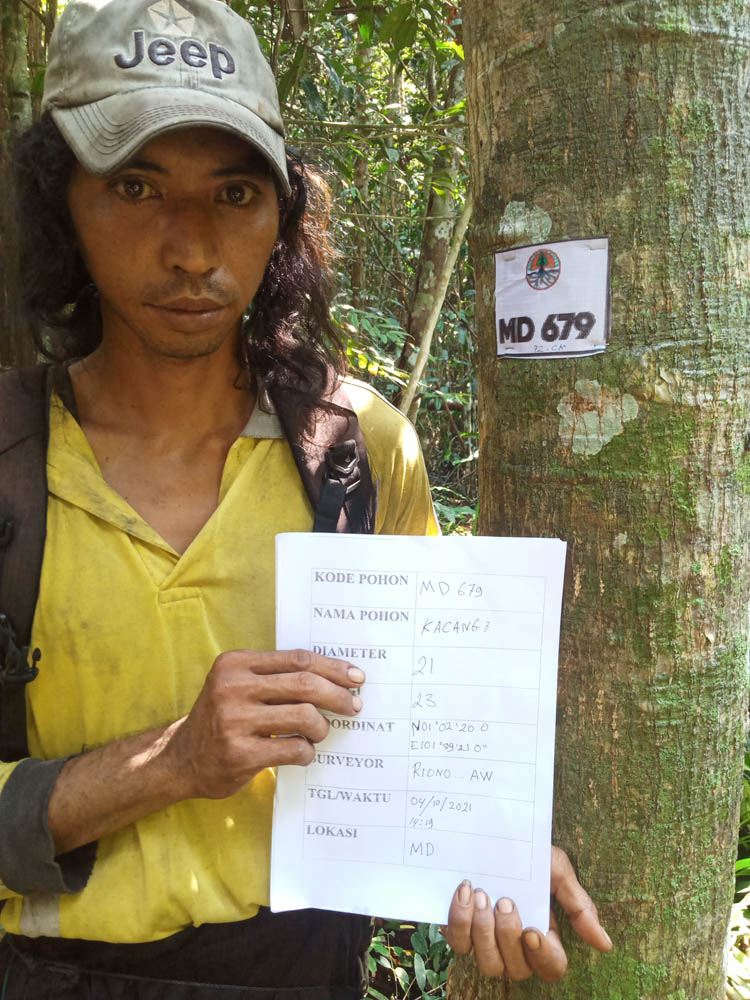 Jeep
MD 679
KODE POHON MD 679
NAMA POHON KACANG2
DIAMETER 21
23
OORDINAT N01°02'20.0
E101°39'21.0"
SURVEYOR RIONO.. AW
TGL/WAKTU 04/10/2021
14:19
LOKASI MD